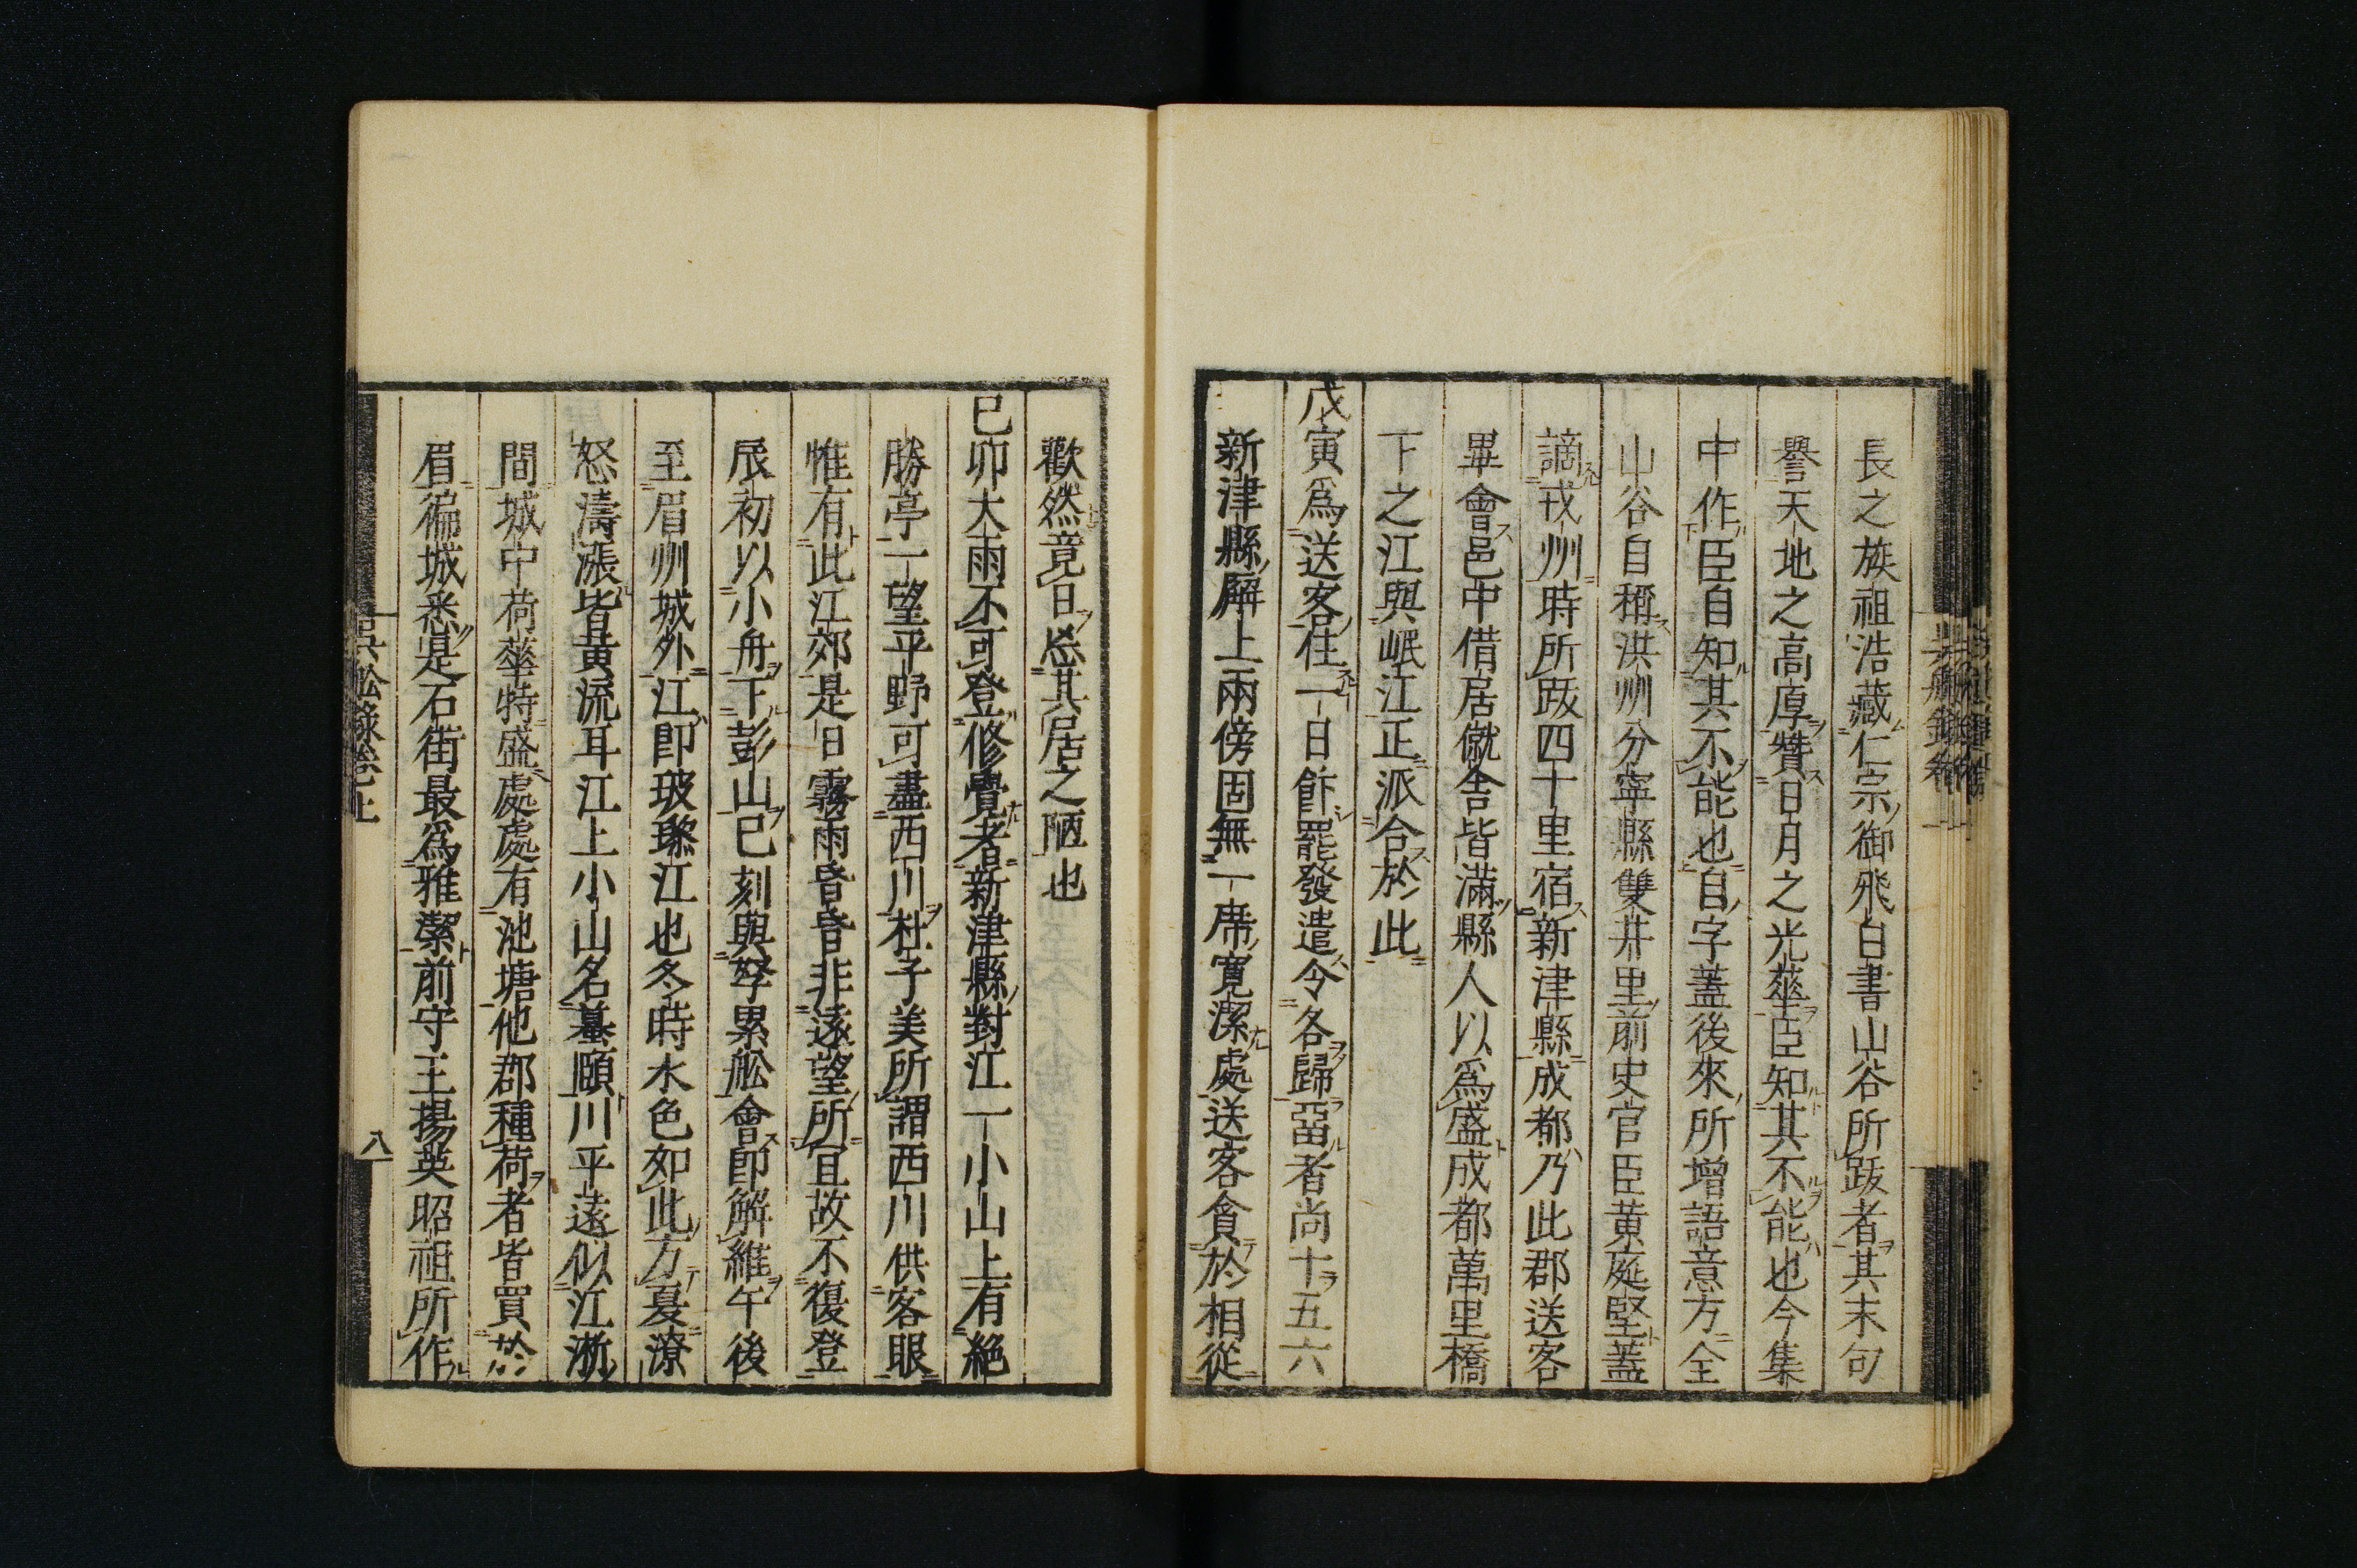 長之族祖浩藏仁宗御飛白書山谷所跋者其末句
譽天地之高厚贊日月之光華臣知其不能也今集
中作臣自知其不能也自字蓋後來所增語意方全
山谷自稱洪州分寧縣雙井里前史官臣黄庭堅蓋
謫戎州時所跋四十里宿新津縣成都乃此郡送客
畢會邑中借居僦舍皆滿縣人以爲盛成都萬里橋
下之江與岷江正派合於此
戊寅爲送客住一日飰罷發遣令各歸畱者尚十五六
新津縣廨上兩傍固無一席寛潔處送客貪於相從
歡然竟日㤀其居之陋也
巳卯大雨不可登修覺者新津縣對江一小山上有絶
勝亭一望平野可盡西川杜子美所謂西川供客眼
惟有此江郊是日霧雨昏昏非遠望所宜故不復登
辰初以小舟下彭山巳刻與孥累舩會即解維午後
至眉州城外江即玻瓈江也冬時水色如此方夏潦
怒濤漲皆黄流耳江上小山名蟇頤川平遠似江淛
間城中荷華特盛處處有池塘他郡種荷者皆買於
眉徧城悉是石街最爲雅潔前守王揚英昭祖所作
吳舩錄卷上
八